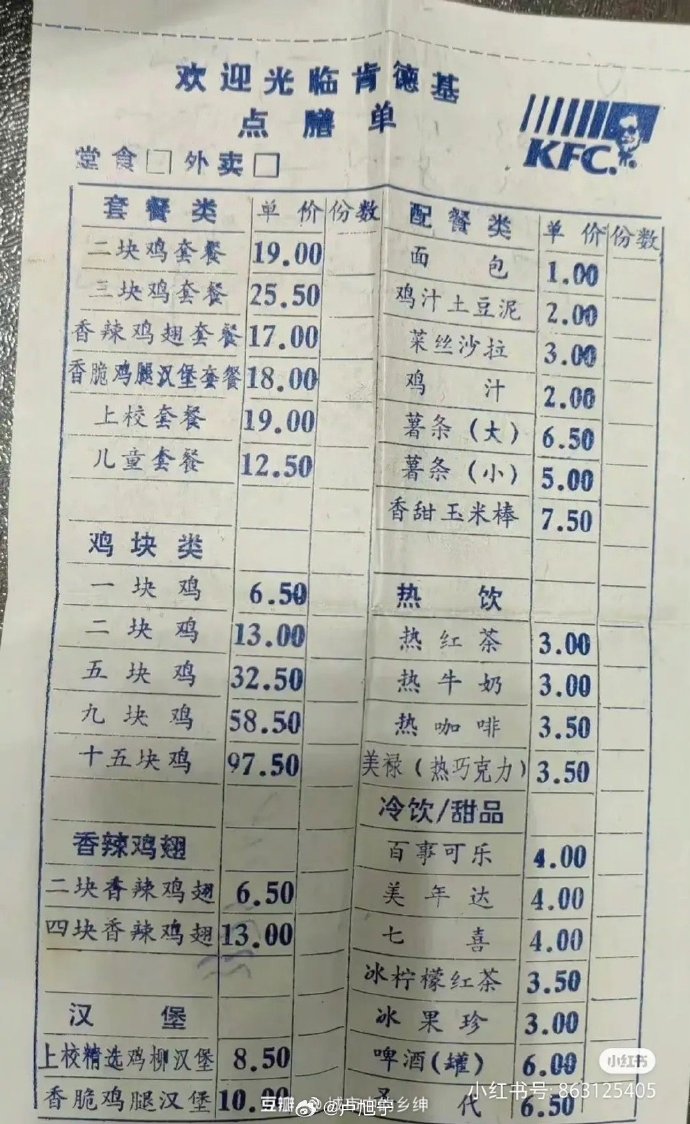 欢迎光临肯德基
点膳单
KFC.
堂食□ 外卖□
套餐类 单价 份数
二块鸡套餐 19.00
三块鸡套餐 25.50
香辣鸡翅套餐 17.00
香脆鸡腿汉堡套餐 18.00
上校套餐 19.00
儿童套餐 12.50
鸡块类
一块鸡 6.50
二块鸡 13.00
五块鸡 32.50
九块鸡 58.50
十五块鸡 97.50
香辣鸡翅
二块香辣鸡翅 6.50
四块香辣鸡翅 13.00
汉堡
上校精选鸡柳汉堡 8.50
香脆鸡腿汉堡 10.00
配餐类 单价 份数
面包 1.00
鸡汁土豆泥 2.00
菜丝沙拉 3.00
鸡汁 2.00
薯条(大) 6.50
薯条(小) 5.00
香甜玉米棒 7.50
热饮
热红茶 3.00
热牛奶 3.00
热咖啡 3.50
美禄(热巧克力) 3.50
冷饮/甜品
百事可乐 4.00
美年达 4.00
七喜 4.00
冰柠檬红茶 3.50
冰果珍 3.00
啤酒(罐) 6.00
代 6.50
小红书
小红书号: 863125405
豆瓣
@卢旭宁
乡绅